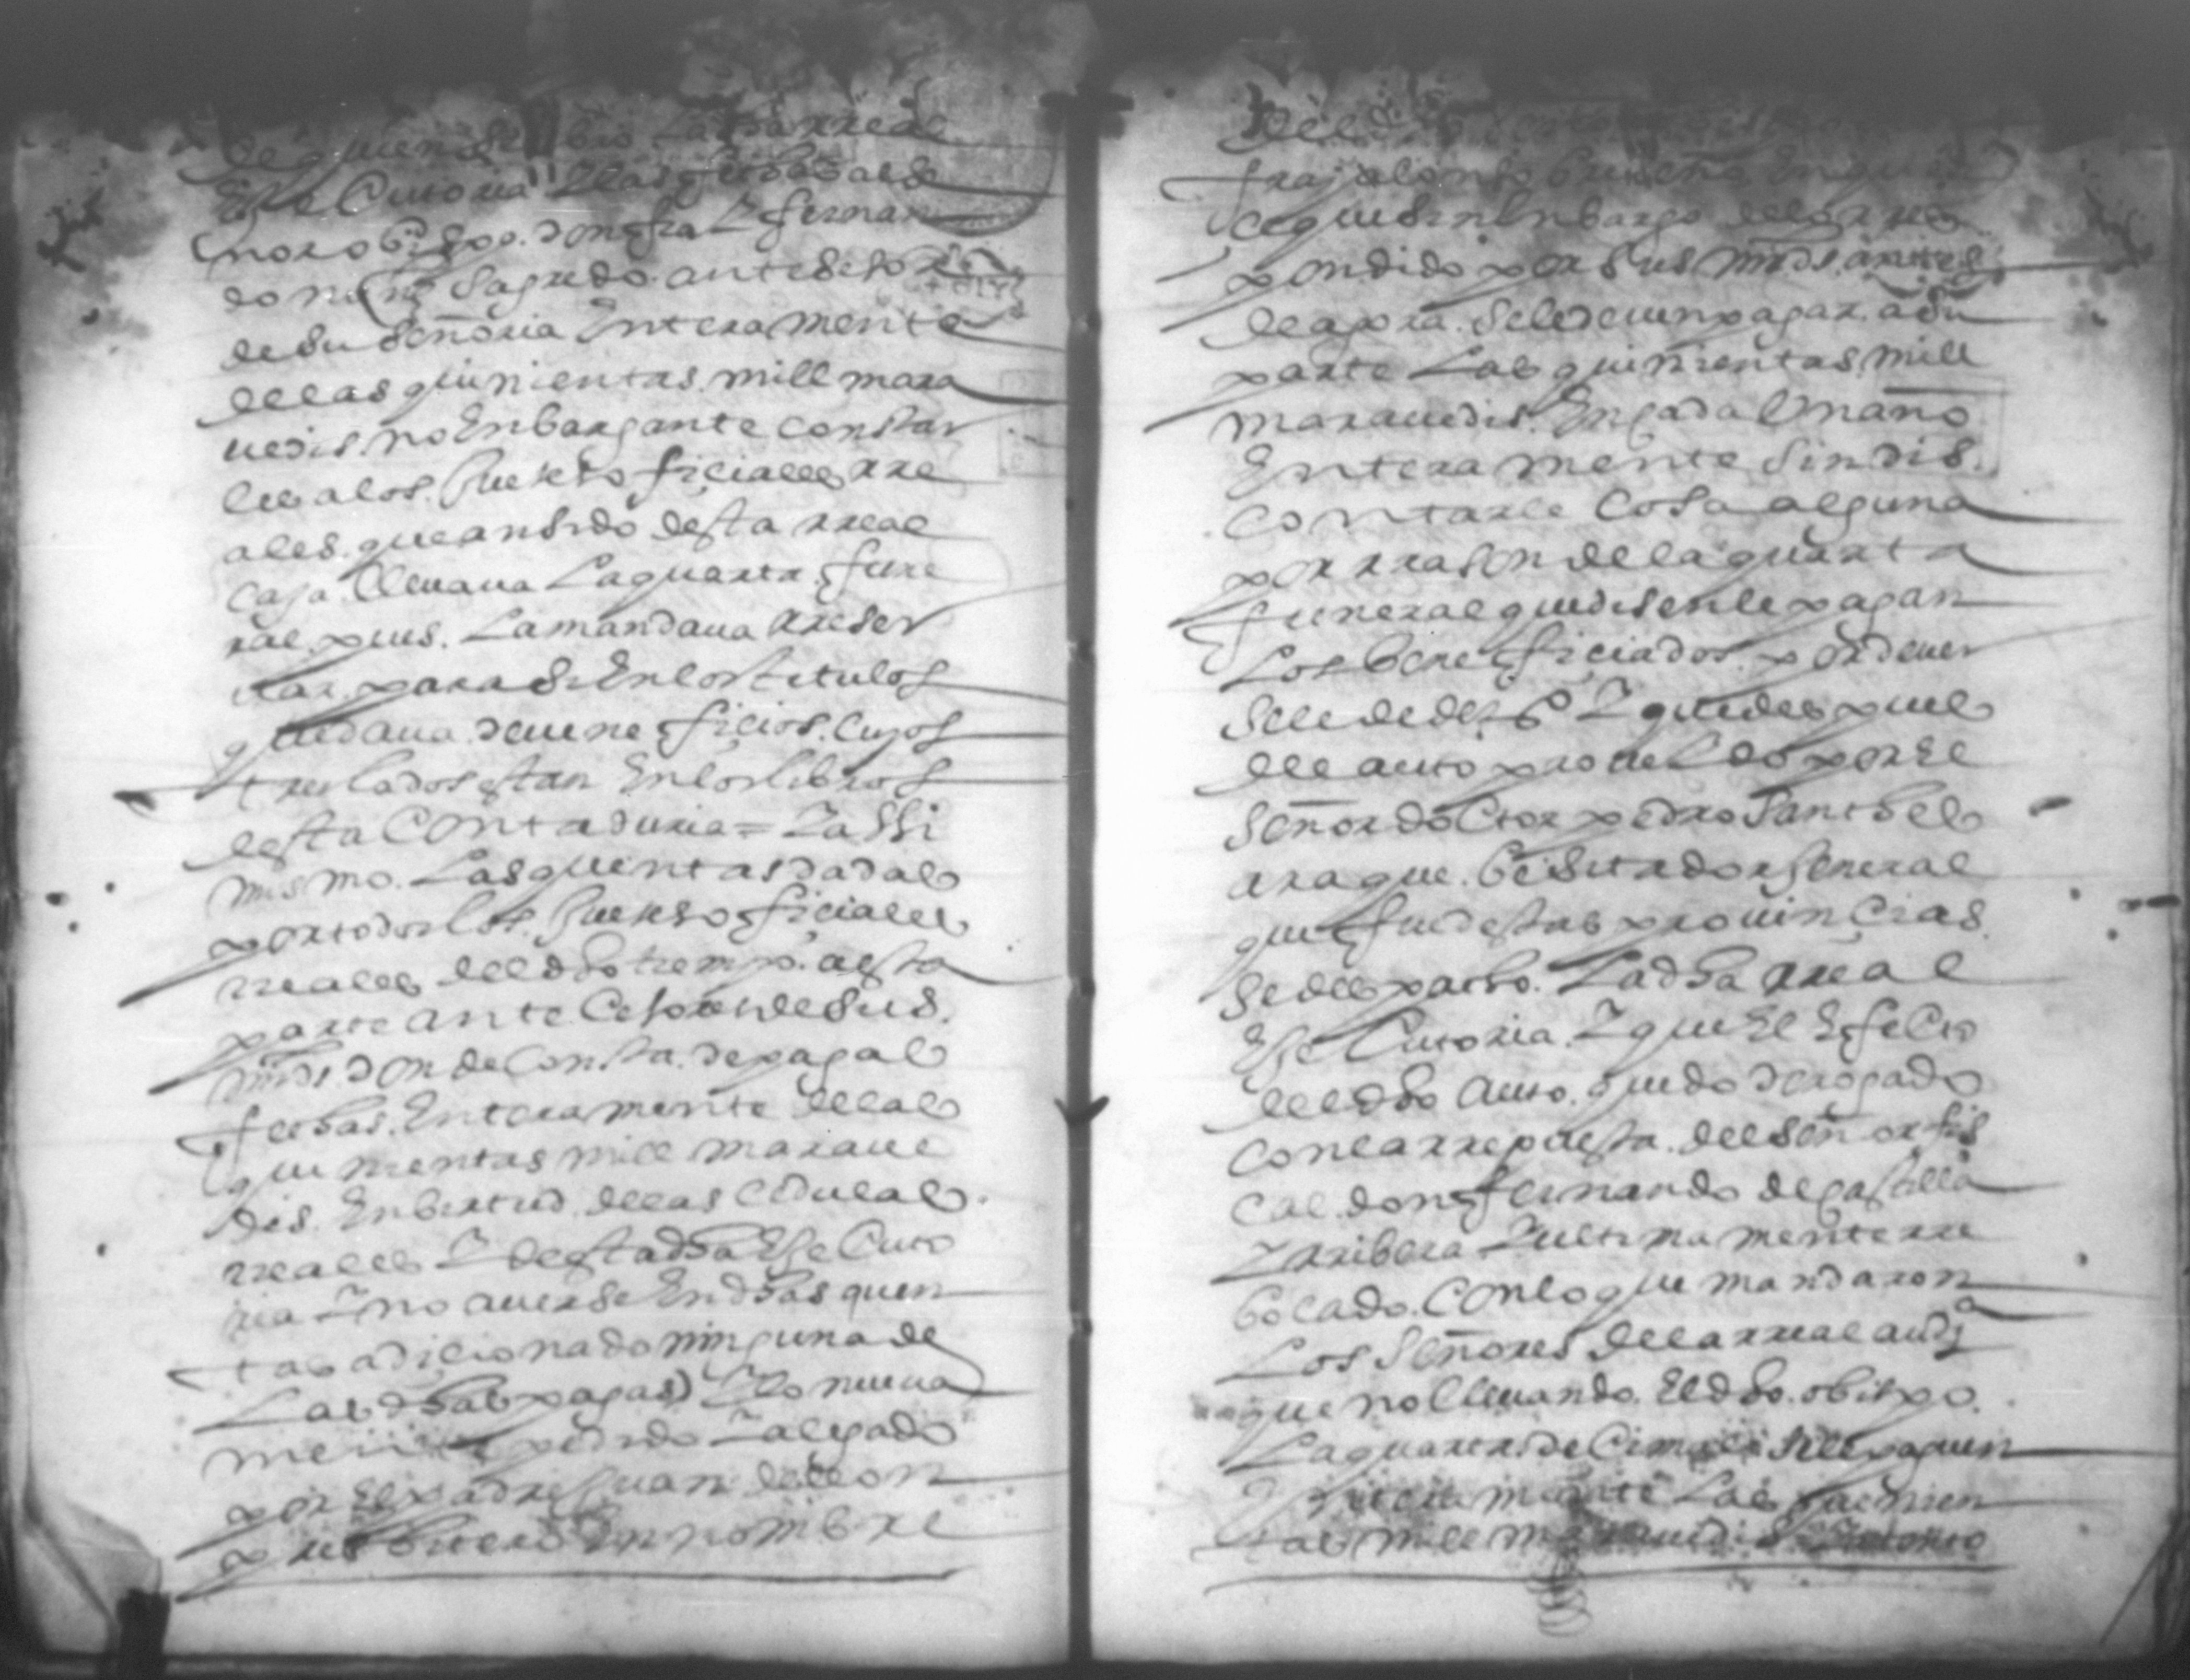 de quien se libro La dha rreal
Esecutoria y las fechas al se
ñor obispo. don fray fernan
do nª sagredo. antesesor
de su señoria Enteramente
de las quinientas. mill mara
uedis. no Enbargante constar
les a los. Jueses oficiales rre
ales. que an sido desta rreal
caja. lleuaua La quarta fune
ral. pues. La mandaua rreser
uar. para si En los titulos
que daua. de uenefiçios. cuyos
treslados estan En los libros
desta Contaduria = y assi
mismo. Las quentas dadas
por todos los. Jueses oficiales
rreales del dho tiempo. a esta
parte ante Contadores de sus.
mrds. donde Consta. de pagas
fechas. Enteramente de las
quinientas mill maraue
dis. En birtud. de las cedulas.
rreales y desta dha Esecuto
ria y no auerse En dhas quen
tas adicionado ninguna de
Las dhas pagas) y lo nueua
mente pedido y alegado
por El padre Juan de leon
presbitero En nombre
del dho
fray alonso briseño En que di
ce que sin Enbargo de lo rres
pondido por sus mrds. antes
de agora. se le deuen pagar. a su
parte Las quinientas mill
marauedis. En cada Un año
Enteramente sin dis.
contarle cosa alguna
por rrason de la quarta
funeral que disen le pagan
Los beneficiados. por deuer
sele de dro y que despues
del auto proueido por El
señor doctor pedro Sanches
araque. bisitador general
que fue destas prouincias.
se despacho. La dha rreal
Esecutoria. y que El Efecto
del dho auto. quedo derogado
con la rrepuesta. del señor fis
cal. don fernando de castilla
y rribera y ultimamente rre
bocado. Con lo que mandaron
Los señores de la rreal audª
que no lleuando. El dho. obispo.
La quarta se le paguen
Enteramente Las quinien
tas mill marauedis